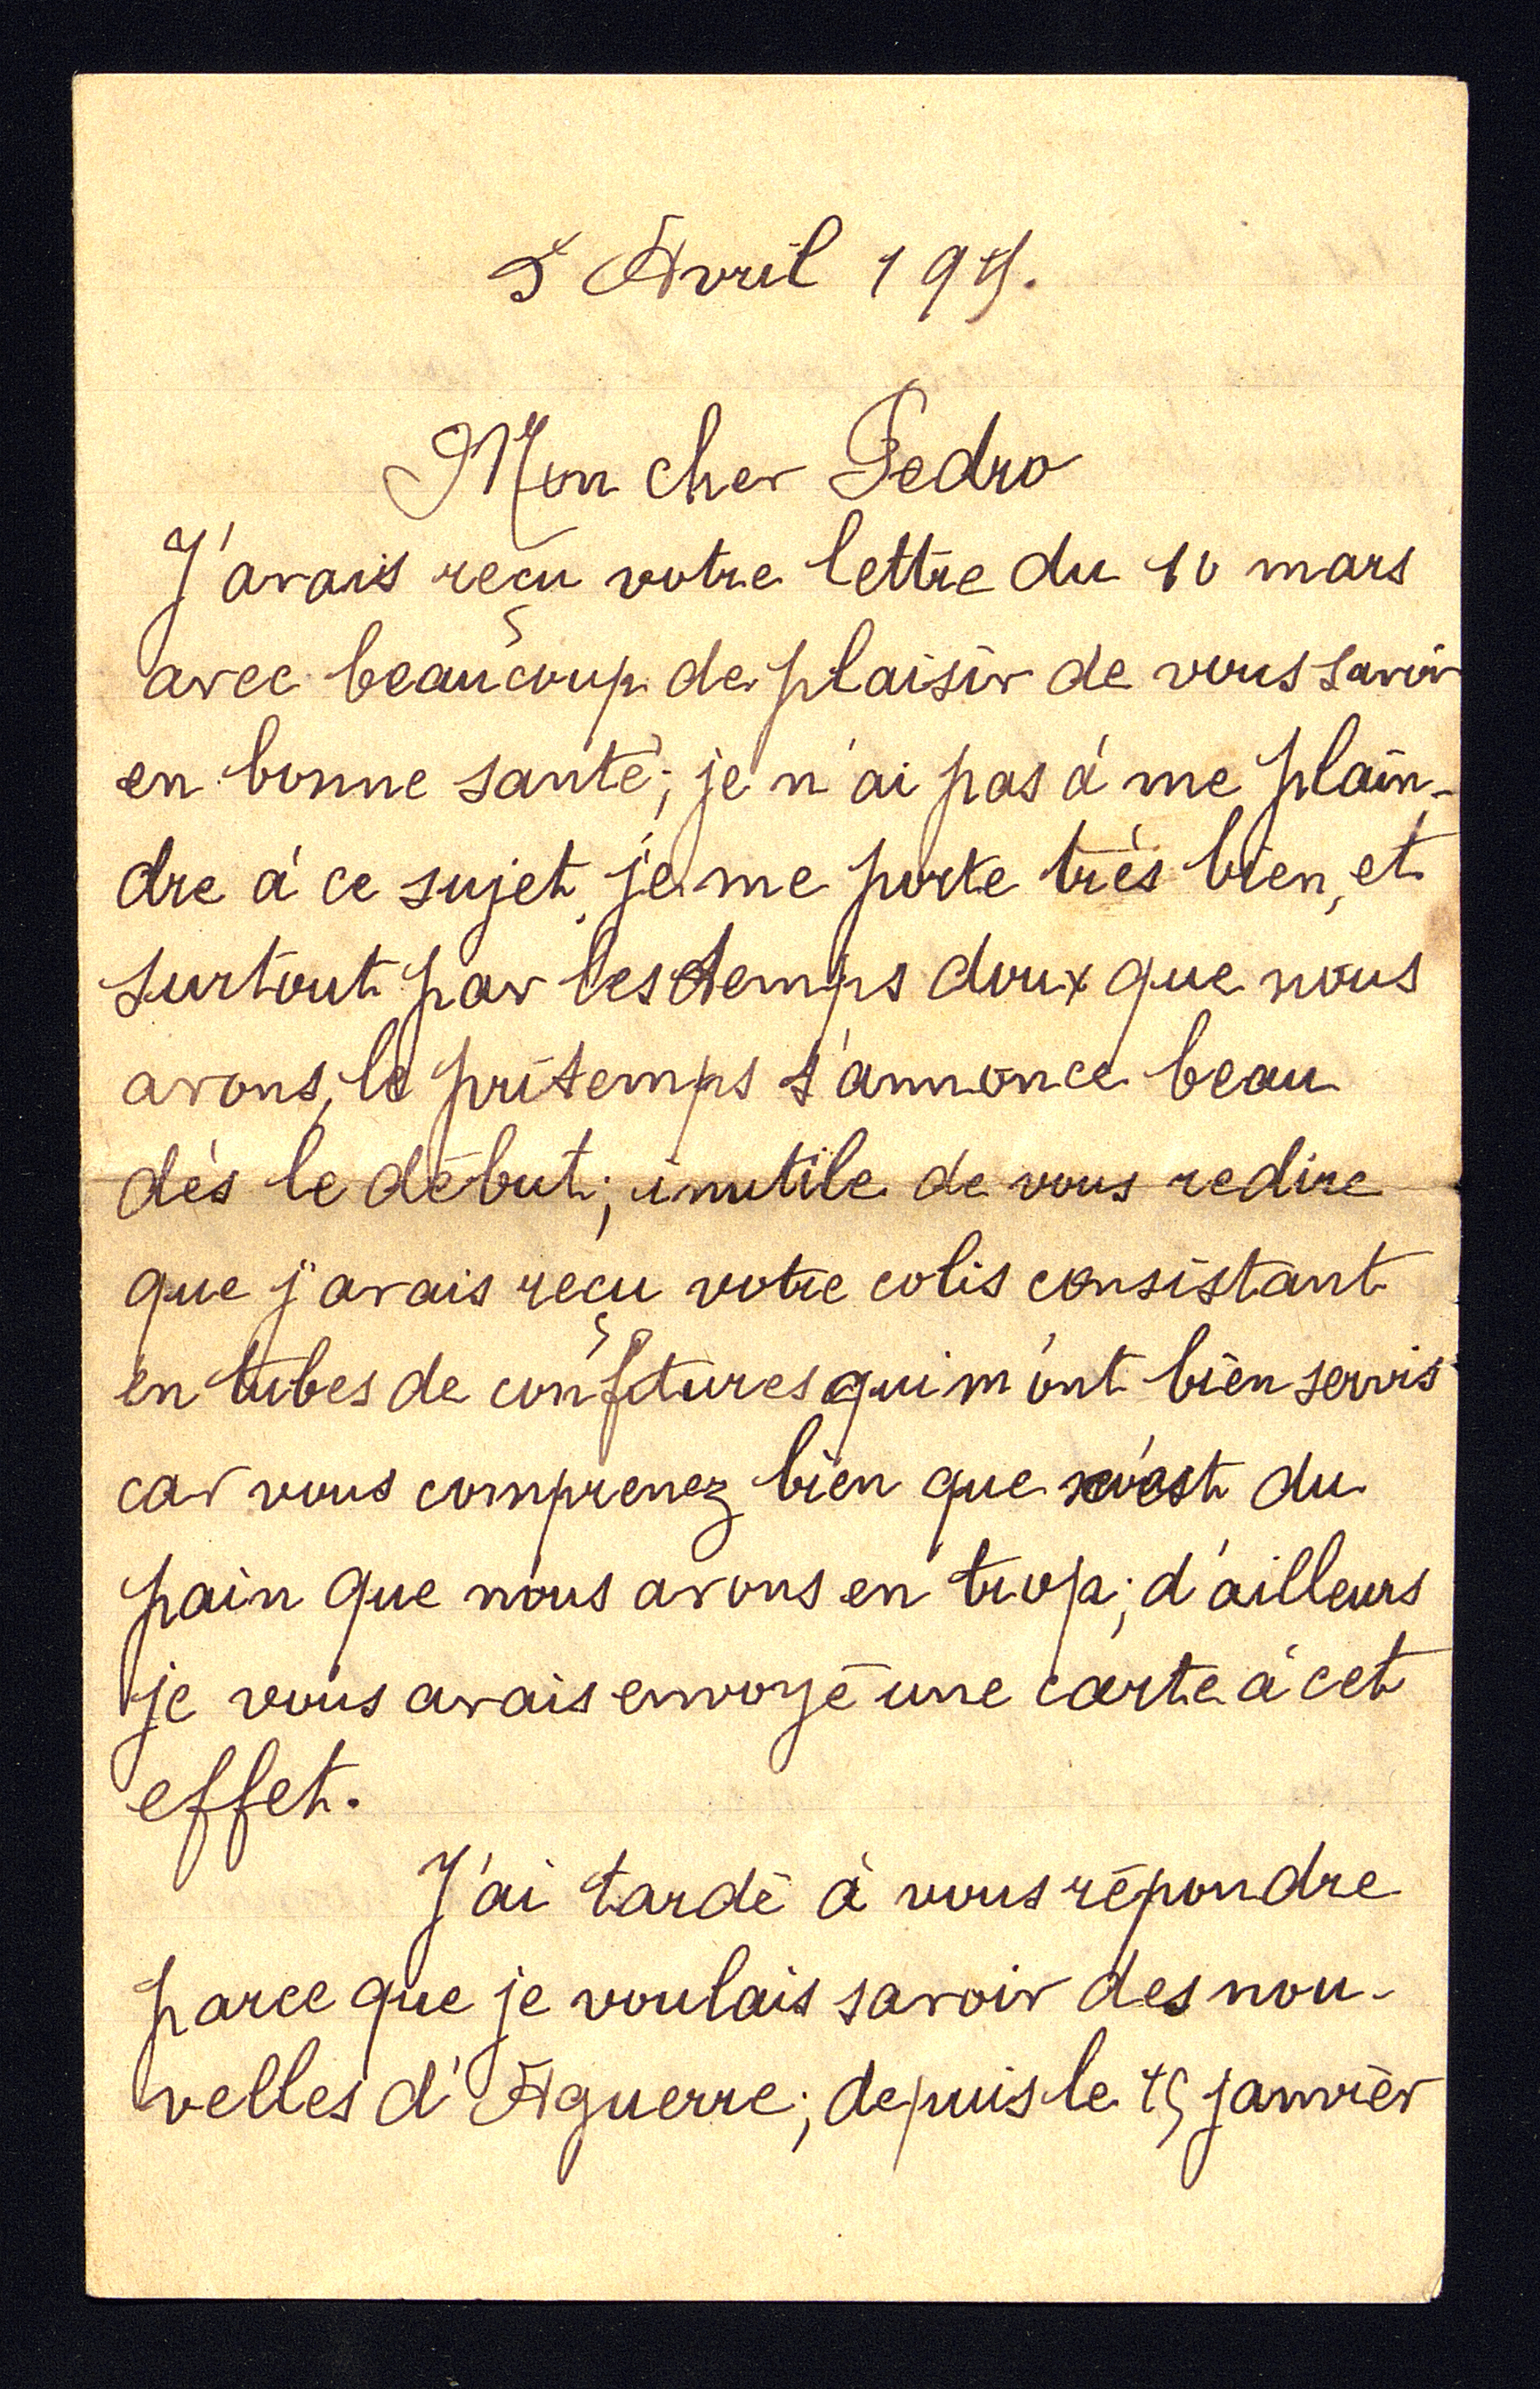 5 Avril 1915.
Mon cher Pedro
J'avais reçu votre lettre du 10 mars
avec beaucoup de plaisir de vous savoir
en bonne santé; je n'ai pas à me plain-
dre à ce sujet, je me porte très bien, et
surtout par les temps doux que nous
avons, le pritemps s'annonce beau
dès le début; inutile de vous redire
que j'avais reçu votre colis consistant
en tubes de confitures qui m'ont bien servis
car vous comprenez bien que c'est du
pain que nous avons en trop; d'ailleurs
je vous avais envoyé une carte à cet
effet.
J'ai tardé à vous répondre
parce que je voulais savoir des nou-
velles d'Aguerre; depuis le 15 janvier